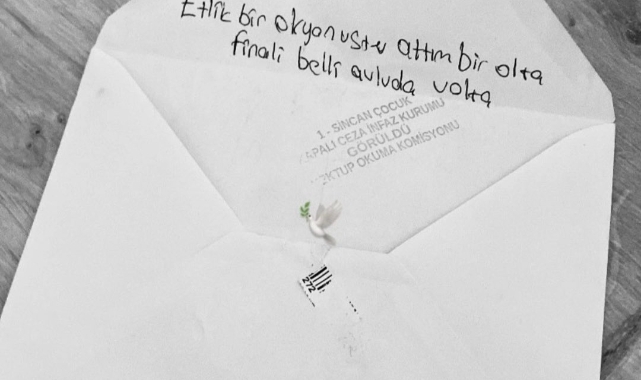 Etlik bir okyonustu attım bir olta
finali belli avluda volta
1 - SİNCAN ÇOCUK
APALI CEZA İNFAZ KURUMU
GÖRÜLDÜ
EKTUP OKUMA KOMİSYONU
272